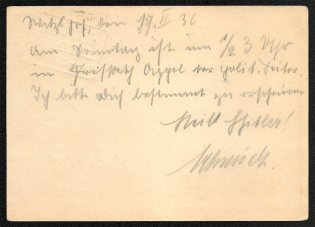 Selzs hof, den 19. II 36
Am Sonntag ist um 1/2 3 Uhr
im Gasth. Appel der polit. Leiter.
Ich bitte Dich bestimmt zu erscheinen
Heil Hitler!
Schmück.